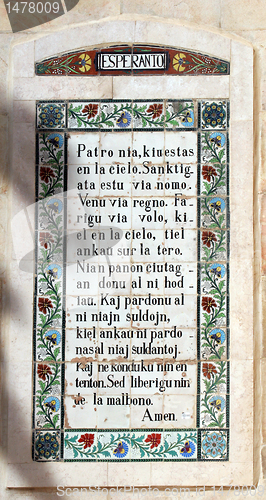 ESPERANTO
Patro nia, kiu estas
en la cielo. Sanktig
ata estu via nomo.
Venu via regno. Fa-
rigu via volo, ki
el en la cielo, tiel
ankau sur la tero.
Nian panon ciutag
an donu al ni hod
iau. Kaj pardonu al
ni niajn suldojn,
kiel ankau ni pardo
nas al niaj suldantoj.
Kaj ne konduku nin en
tenton. Sed liberigu nin
de la malbono.
Amen.